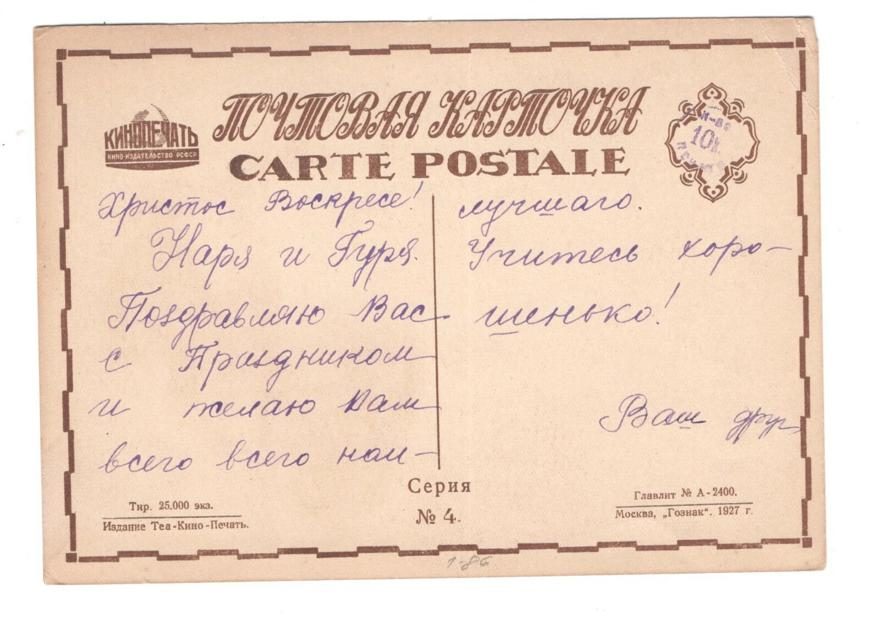 ПОЧТОВАЯ КАРТОЧКА
КИНОПЕЧАТЬ
КИНО-ИЗДАТЕЛЬСТВО РСФСР
CARTE POSTALE
10к.
Христос Воскресе!
Наря и Гуря.
Поздравляю Вас
с Праздником
и желаю Вам
всего всего наи-
лучшаго.
Учитесь хоро-
шенько!
Ваш друг
Тир. 25.000 экз.
Издание Теа-Кино-Печать.
Серия
№ 4.
Главлит № А-2400.
Москва, „Гознак". 1927 г.
1-86